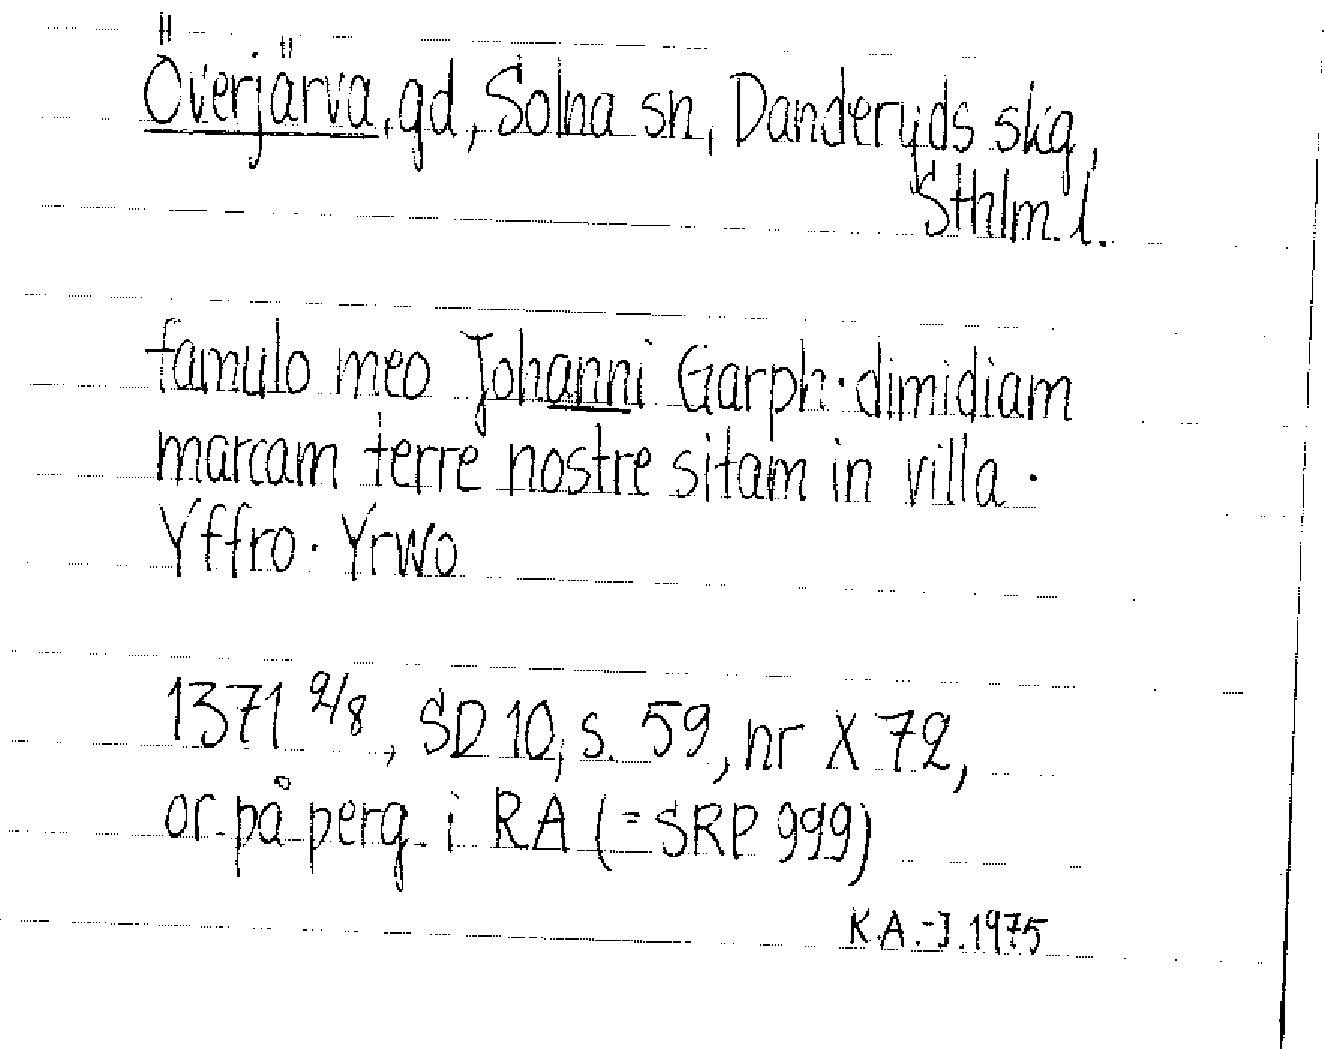 Överjärva, gd, Solna sn, Danderyds skg,
Sthlm. l.
famulo meo Johanni Garph · dimidiam
marcam terre nostre sitam in villa ·
Yffro · Yrwo
1371 9/8, SD 10, s. 59, nr X 72,
or på perg. i RA (= SRP 999)
K.A.-J. 1975